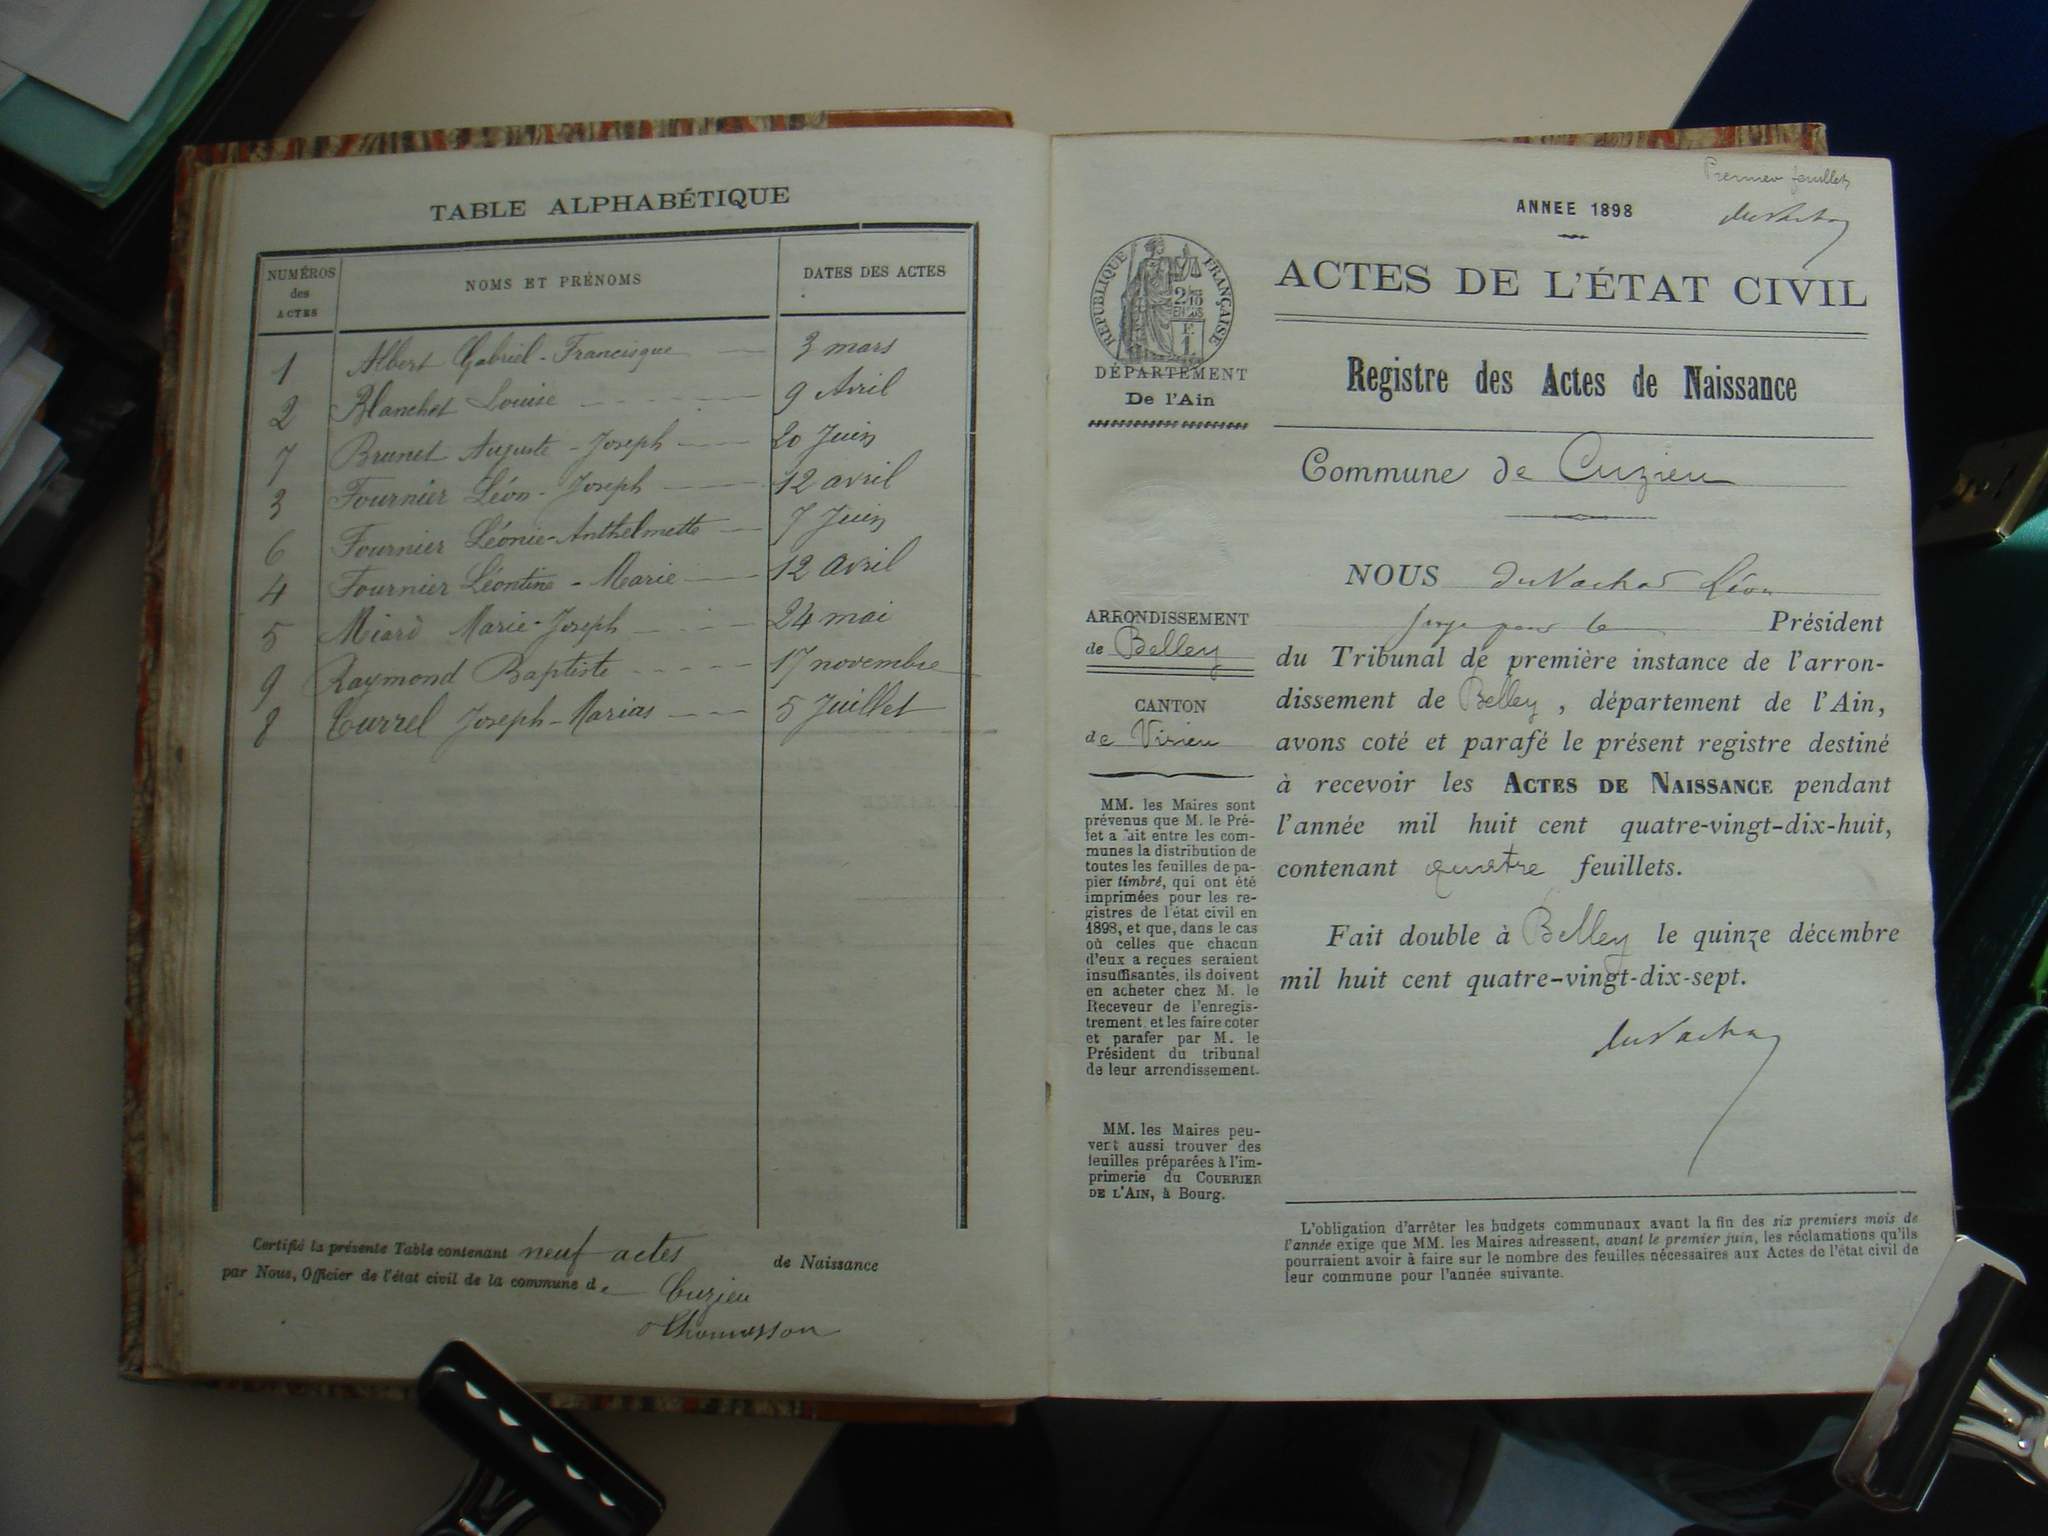 TABLE ALPHABÉTIQUE
NUMÉROS des ACTES NOMS ET PRÉNOMS DATES DES ACTES
1 Albert Gabriel-Francisque 3 mars
2 Blanchet Louise 9 Avril
7 Brunet Auguste-Joseph 20 Juin
3 Fournier Léon-Joseph 12 avril
6 Fournier Léonie-Anthelmette 7 Juin
4 Fournier Léontine-Marie 12 avril
5 Miard Marie-Joseph 24 mai
9 Raymond Baptiste 17 novembre
8 Turrel Joseph-Marius 5 Juillet
Certifié la présente Table contenant neuf actes de Naissance
par Nous, Officier de l'état civil de la commune de Cuzieu
Thomasson
Premier feuillet
ANNEE 1898
RÉPUBLIQUE FRANÇAISE
ACTES DE L'ÉTAT CIVIL
DÉPARTEMENT
De l'Ain
Registre des Actes de Naissance
Commune de Cuzieu
NOUS Léon
ARRONDISSEMENT
de Belley
Président
du Tribunal de première instance de l'arron-
dissement de Belley, département de l'Ain,
avons coté et parafé le présent registre destiné
à recevoir les ACTES DE NAISSANCE pendant
l'année mil huit cent quatre-vingt-dix-huit,
contenant quatre feuillets.
Fait double à Belley le quinze décembre
mil huit cent quatre-vingt-dix-sept.
CANTON
de Virieu
MM. les Maires sont
prévenus que M. le Pré-
fet a fait entre les com-
munes la distribution de
toutes les feuilles de pa-
pier timbré, qui ont été
imprimées pour les re-
gistres de l'état civil en
1898, et que, dans le cas
où celles que chacun
d'eux a reçues seraient
insuffisantes, ils doivent
en acheter chez M. le
Receveur de l'enregis-
trement et les faire coter
et parafer par M. le
Président du tribunal
de leur arrondissement.
MM. les Maires peu-
vent aussi trouver des
feuilles préparées à l'im-
primerie du COURRIER
DE L'AIN, à Bourg.
L'obligation d'arrêter les budgets communaux avant la fin des six premiers mois de
l'année exige que MM. les Maires adressent, avant le premier juin, les réclamations qu'ils
pourraient avoir à faire sur le nombre des feuilles nécessaires aux Actes de l'état civil de
leur commune pour l'année suivante.